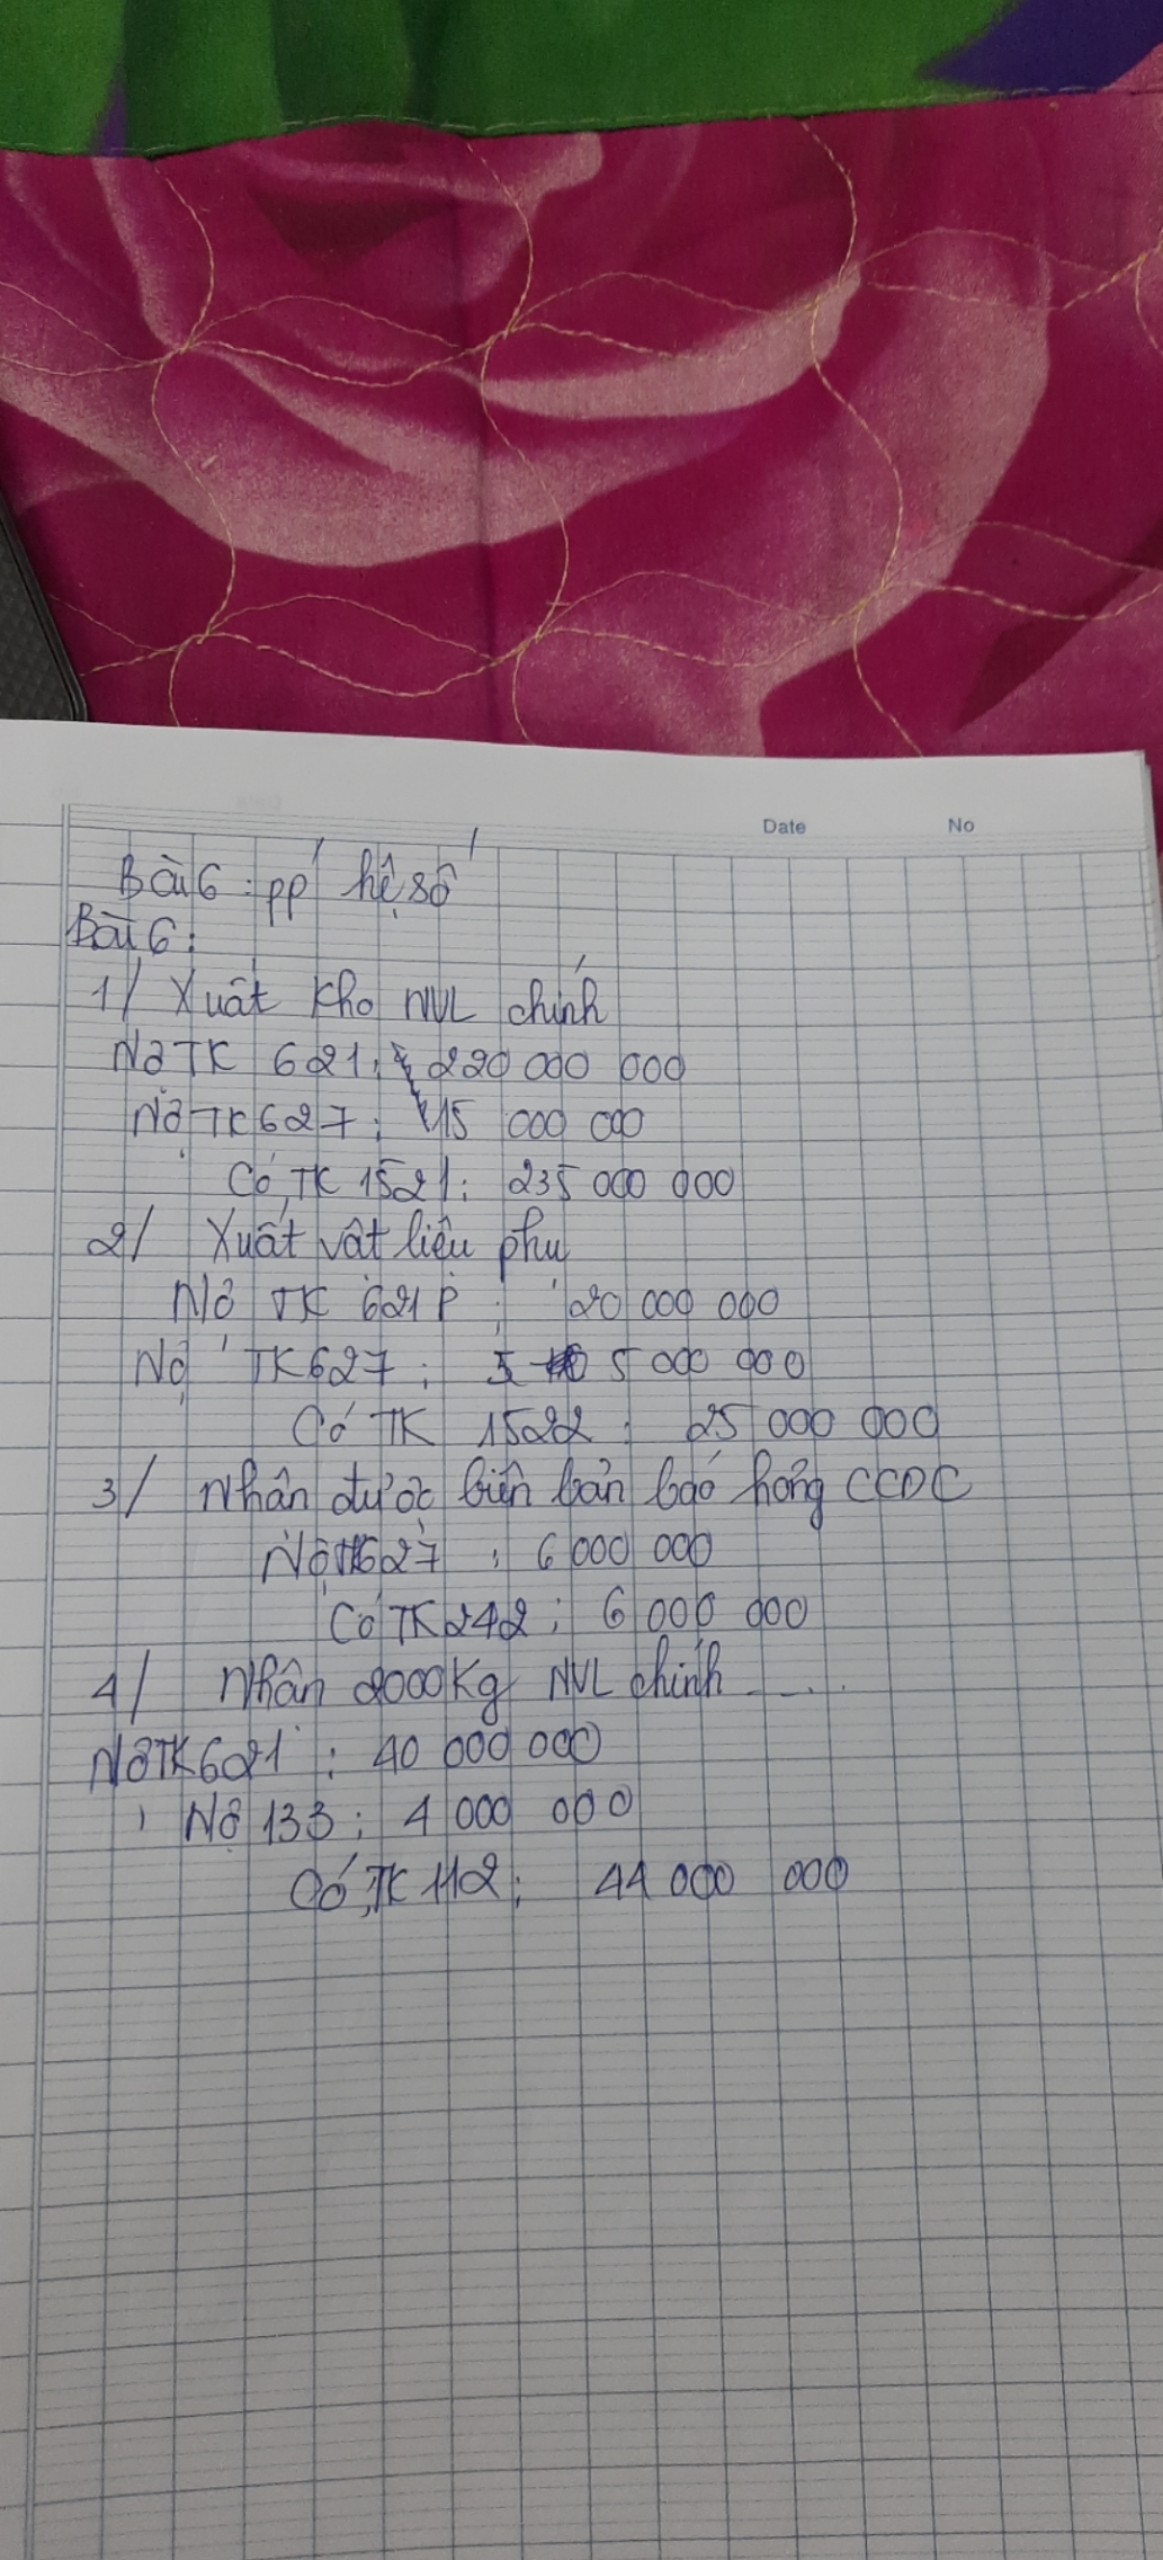 Date No
Bài 6: pp hệ số
Bài 6:
1/ Xuất kho NVL chính
Nợ TK 621: 220 000 000
Nợ TK 627: 15 000 000
Có TK 1521: 235 000 000
2/ Xuất vật liệu phụ
Nợ TK 621P: 20 000 000
Nợ TK 627: 5 000 000
Có TK 1522: 25 000 000
3/ Nhận được biên bản báo hỏng CCDC
Nợ TK 627: 6 000 000
Có TK 242: 6 000 000
4/ Nhận 2000kg NVL chính ....
Nợ TK 621: 40 000 000
Nợ 133: 4 000 000
Có TK 112: 44 000 000